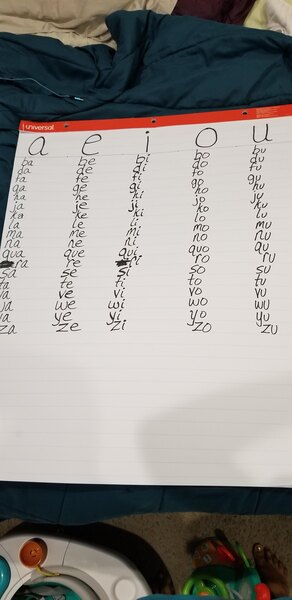 universal
a e i o u
ba be bi bo bu
da de di do du
fa fe fi fo fu
ga ge gi go gu
ha he hi ho hu
ja je ji jo ju
ka ke ki ko ku
la le li lo lu
ma me mi mo mu
na ne ni no nu
qua que qui quo qu
ra re ri ro ru
sa se si so su
ta te ti to tu
va ve vi vo vu
wa we wi wo wu
ya ye yi yo yu
za ze zi zo zu